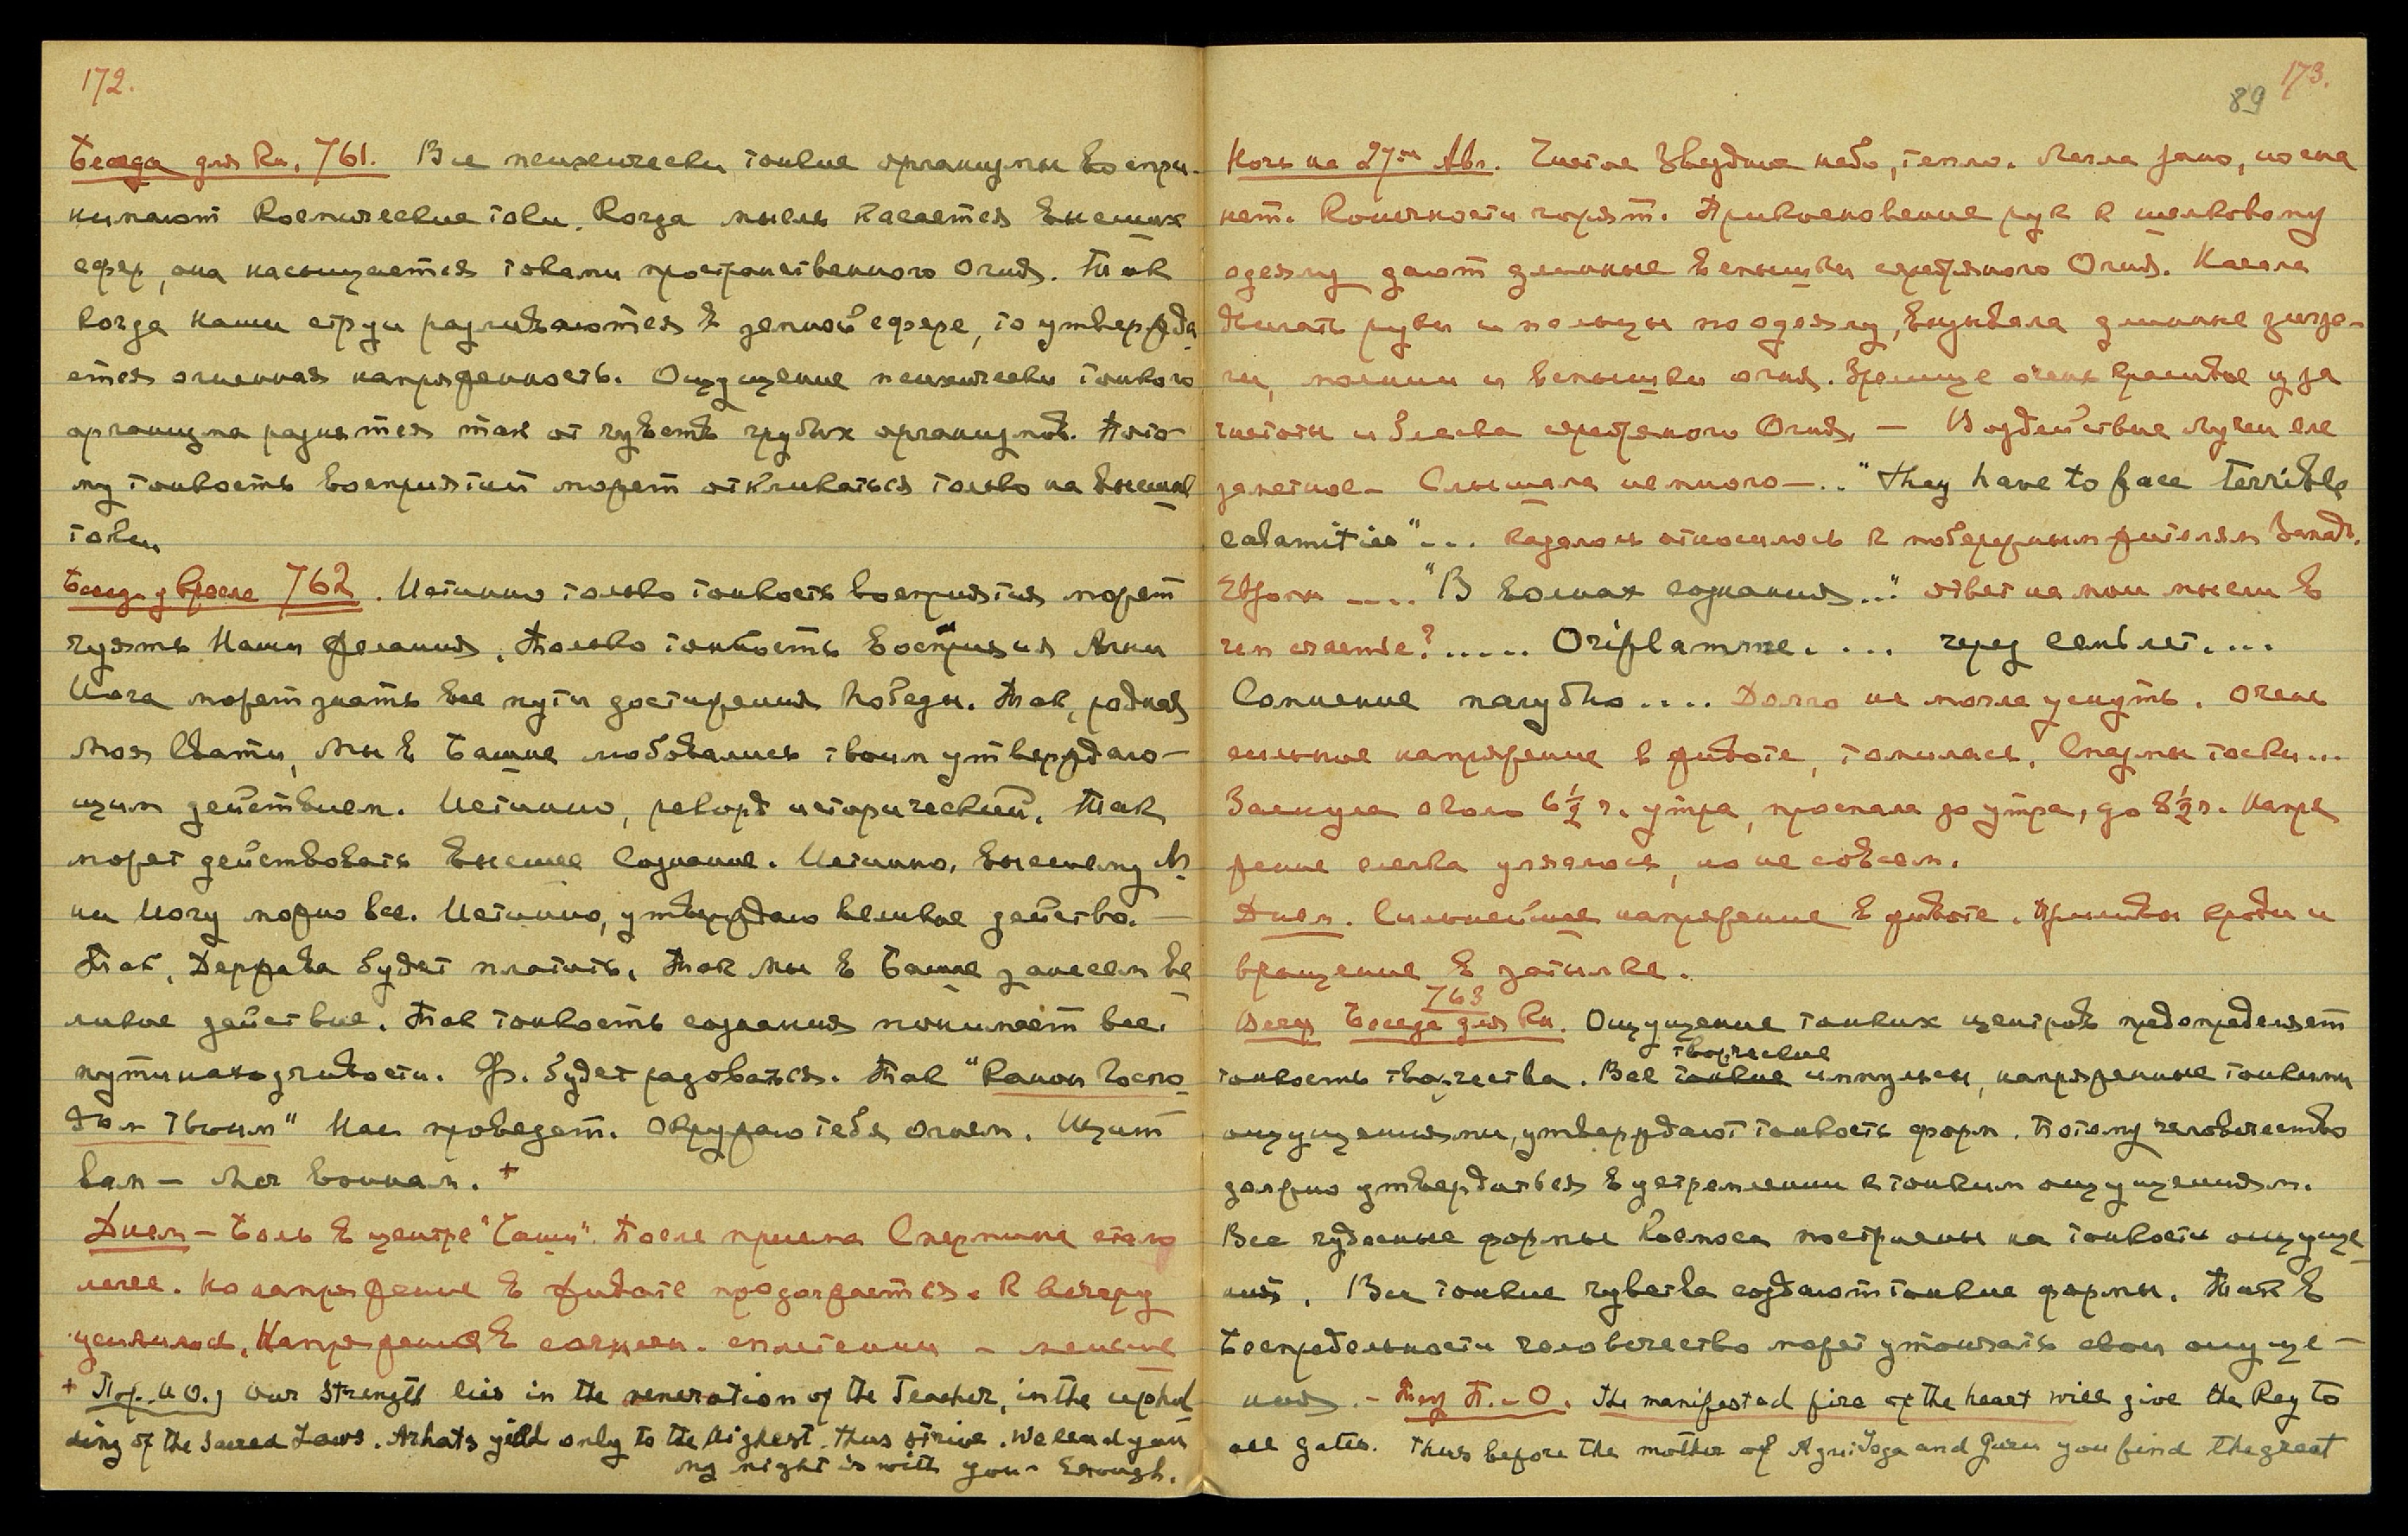 172.
Беседа для Кн. 761. Все психически тонкие организмы воспри-
нимают космические токи. Когда мысль касается высших
сфер, она насыщается токами пространственного Огня. Так
когда наши струи разливаются в земной сфере, то утвержда
ется огненная напряженность. Ощущение психически тонкого
организма разнится так от чувств грубых организмов. Пото-
му тонкость восприятий может откликаться только на высшие
токи
Беседа у Кресла 762. Истинно только тонкость восприятия может
чуять Наши желания. Только тонкость восприятия Агни
Йога может знать все пути достижения победы. Так, родная
Моя Свати, Мы в Башне любовались твоим утверждаю-
щим действием. Истинно, рекорд исторический. Так
может действовать высшее сознание. Истинно, высшему Аг
ни Йогу можно все. Истинно, утверждаю великое действо. —
Так, Держава будет платить. Так Мы в Башне занесем ве
ликое действие. Так тонкость сознания понимает все.
пути находчивости. Ф. будет радоваться. Так "Камон Госпо
дом Твоим" Нас проведет. Окружаю тебя огнем. Щит
вам — Меч воинам. +
Днем — Боль в центре "Чаши". После приема Спермина стало
легче. Но напряжение в животе продолжается. К вечеру
усилилось. Напряжение в солнечн. сплетении — меньше
+ our strength lies in the veneration of the Teacher, in the uphol
ding of the sacred Laws. Arhats yield only to the highest. thus strive. We lead you
my night is with you - Enough.
173.
89
Ночь на 27ое Авг. Чистое звездное небо, тепло. Легла рано, но сна
нет. Конечности горят. Прикосновение рук к шелковому
одеялу дают длинные вспышки серебряного Огня. Начала
двигать руки и пальцы по одеялу, вызывала длинные зигза-
ги, молнии и вспышки огня. Зрелище очень красивое из за
чистоты и блеска серебряного Огня. — Воздействие Лучей еле
заметное — Слышала немного — .. "They have to face terrible
calamities"... казалось относилось к побережным жителям Запад.
Европы .... "В волнах сознания..." ответ на мои мысли в
чем счастье? ..... Oriflamme. ... через семь лет....
Сомнение пагубно.... Долго не могла уснуть. Очень
сильное напряжение в животе, томилась. Спазмы тоски...
Заснула около 6½ ч. утра, проспала до утра, до 8½ ч. Напря
жение слегка унялось, но не совсем.
Днем. Сильнейшее напряжение в животе. Приливы крови и
вращение в затылке.
763
Вечер Беседа для Кн. Ощущение тонких центров предопределяет
творческие
тонкость творчества. Все тонкие импульсы, напряженные тонкими
ощущениями, утверждают тонкость форм. Потому человечество
должно утвердиться в устремлении к тонким ощущениям.
Все чудесные формы Космоса построены на тонкости ощуще
ний. Все тонкие чувства создают тонкие формы. Так в
Беспредельности человечество может утончать свои ощуще —
ния. — The manifested fire of the heart will give the Key to
all gates. Thus before the mother of Agni Yoga and Guru you find the great